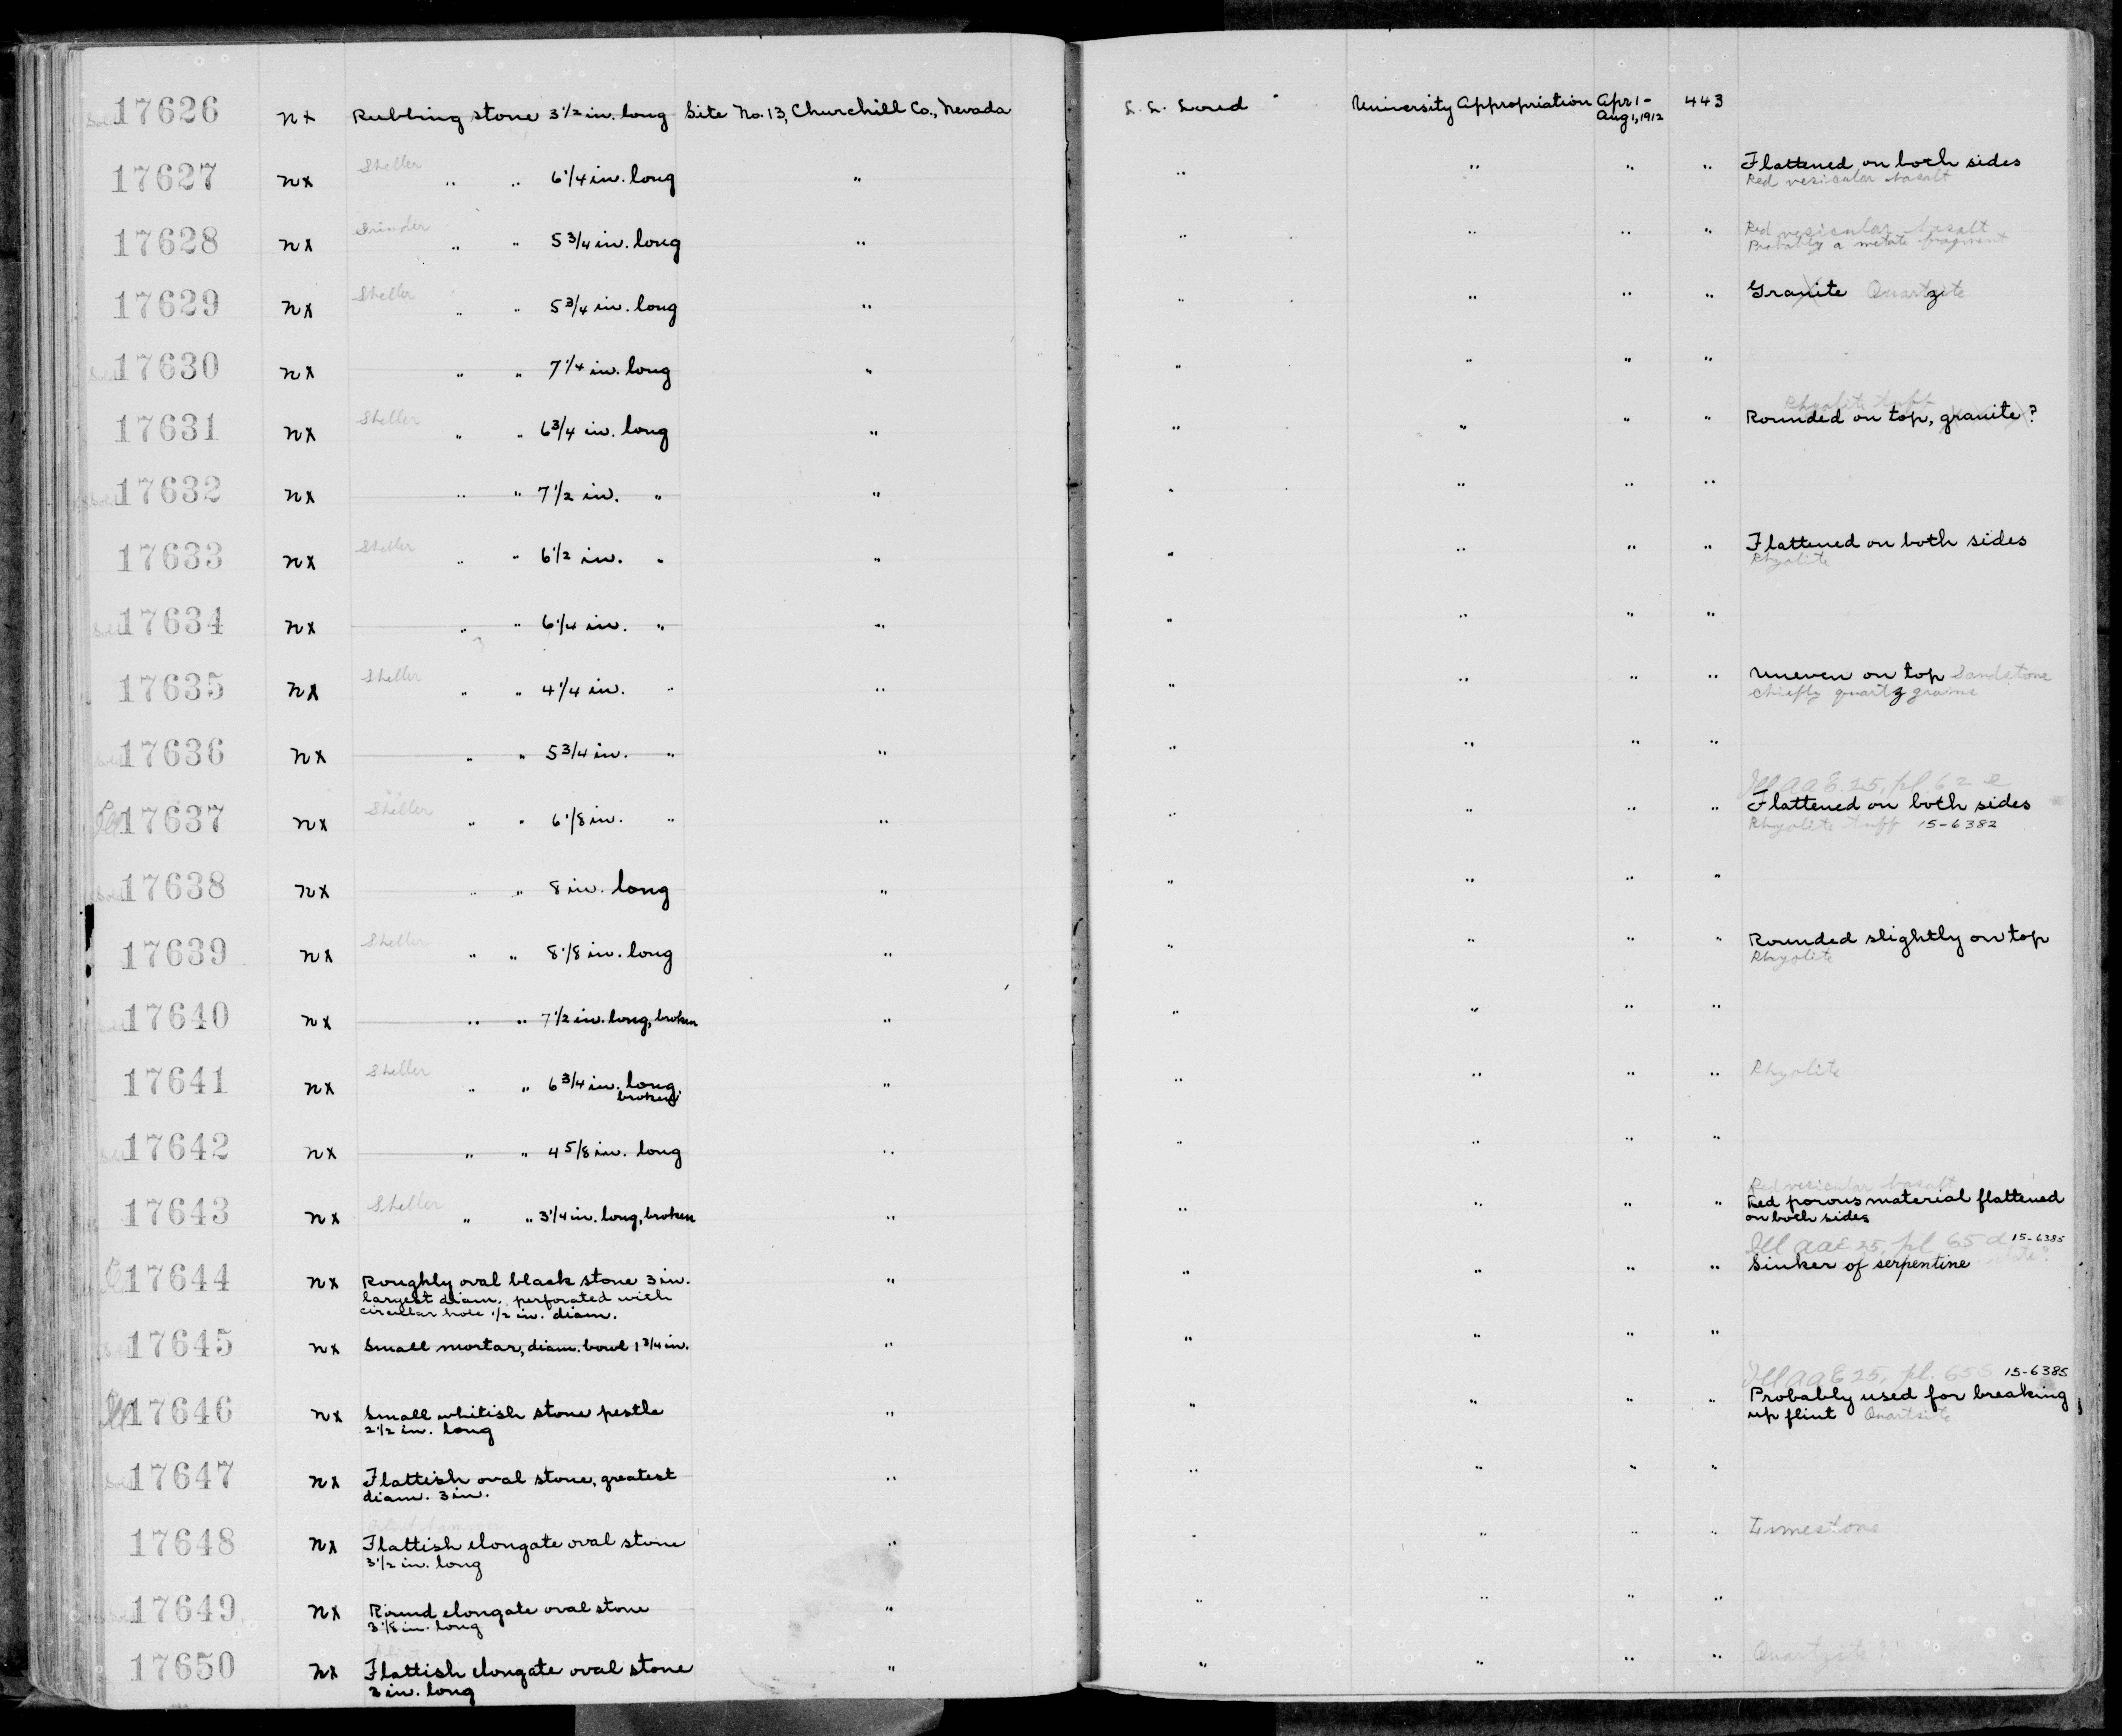 17626 nx Rubbing stone 3 1/2 in. long Site No. 13, Churchill Co., Nevada L. L. Loud University Appropriation Apr 1 - Aug 1, 1912 443
17627 nx Sheller " " 6 1/4 in. long " " " " " Flattened on both sides
Red vesicular basalt
17628 nx Grinder " " 5 3/4 in. long " " " " " Red vesicular basalt
Probably a metate fragment
17629 nx Sheller " " 5 3/4 in. long " " " " " Granite Quartzite
17630 nx " " 7 1/4 in. long " " " " "
Rhyolite tuff
17631 nx Sheller " " 6 3/4 in. long " " " " " Rounded on top, granite?
17632 nx " " 7 1/2 in. " " " " " "
17633 nx Sheller " " 6 1/2 in. " " " " " " Flattened on both sides
Rhyolite
17634 nx " " 6 1/4 in. " " " " " "
17635 nx Sheller " " 4 1/4 in. " " " " " " Uneven on top Sandstone
chiefly quartz grains
17636 nx " " 5 3/4 in. " " " " " "
Ill AAE 25, pl. 62 e
17637 nx Sheller " " 6 1/8 in. " " " " " " Flattened on both sides
Rhyolite tuff 15-6382
17638 nx " " 8 in. long " " " " "
17639 nx Sheller " " 8 1/8 in. long " " " " " Rounded slightly on top
Rhyolite
17640 nx " " 7 1/2 in. long, broken " " " " "
17641 nx Sheller " " 6 3/4 in. long, " " " " " Rhyolite
broken
17642 nx " " 4 5/8 in. long " " " " "
Red vesicular basalt
17643 nx Sheller " " 3 1/4 in. long, broken " " " " " Red porous material flattened
on both sides
Ill AAE 25, pl 65 d 15-6385
17644 nx Roughly oval black stone 3 in. " " " " " Sinker of serpentine slate?
largest diam. perforated with
circular hole 1/2 in. diam.
17645 nx Small mortar, diam. bowl 1 3/4 in. " " " " "
Ill AAE 25, pl. 65 15-6385
17646 nx Small whitish stone pestle " " " " " Probably used for breaking
2 1/2 in. long up flint Quartzite
17647 nx Flattish oval stone, greatest " " " " "
diam. 3 in.
17648 nx Flattish elongate oval stone " " " " " Limestone
3 1/2 in. long
17649 nx Round elongate oval stone " " " " "
3 1/8 in. long
17650 nx Flattish elongate oval stone " " " " " Quartzite?
3 in. long